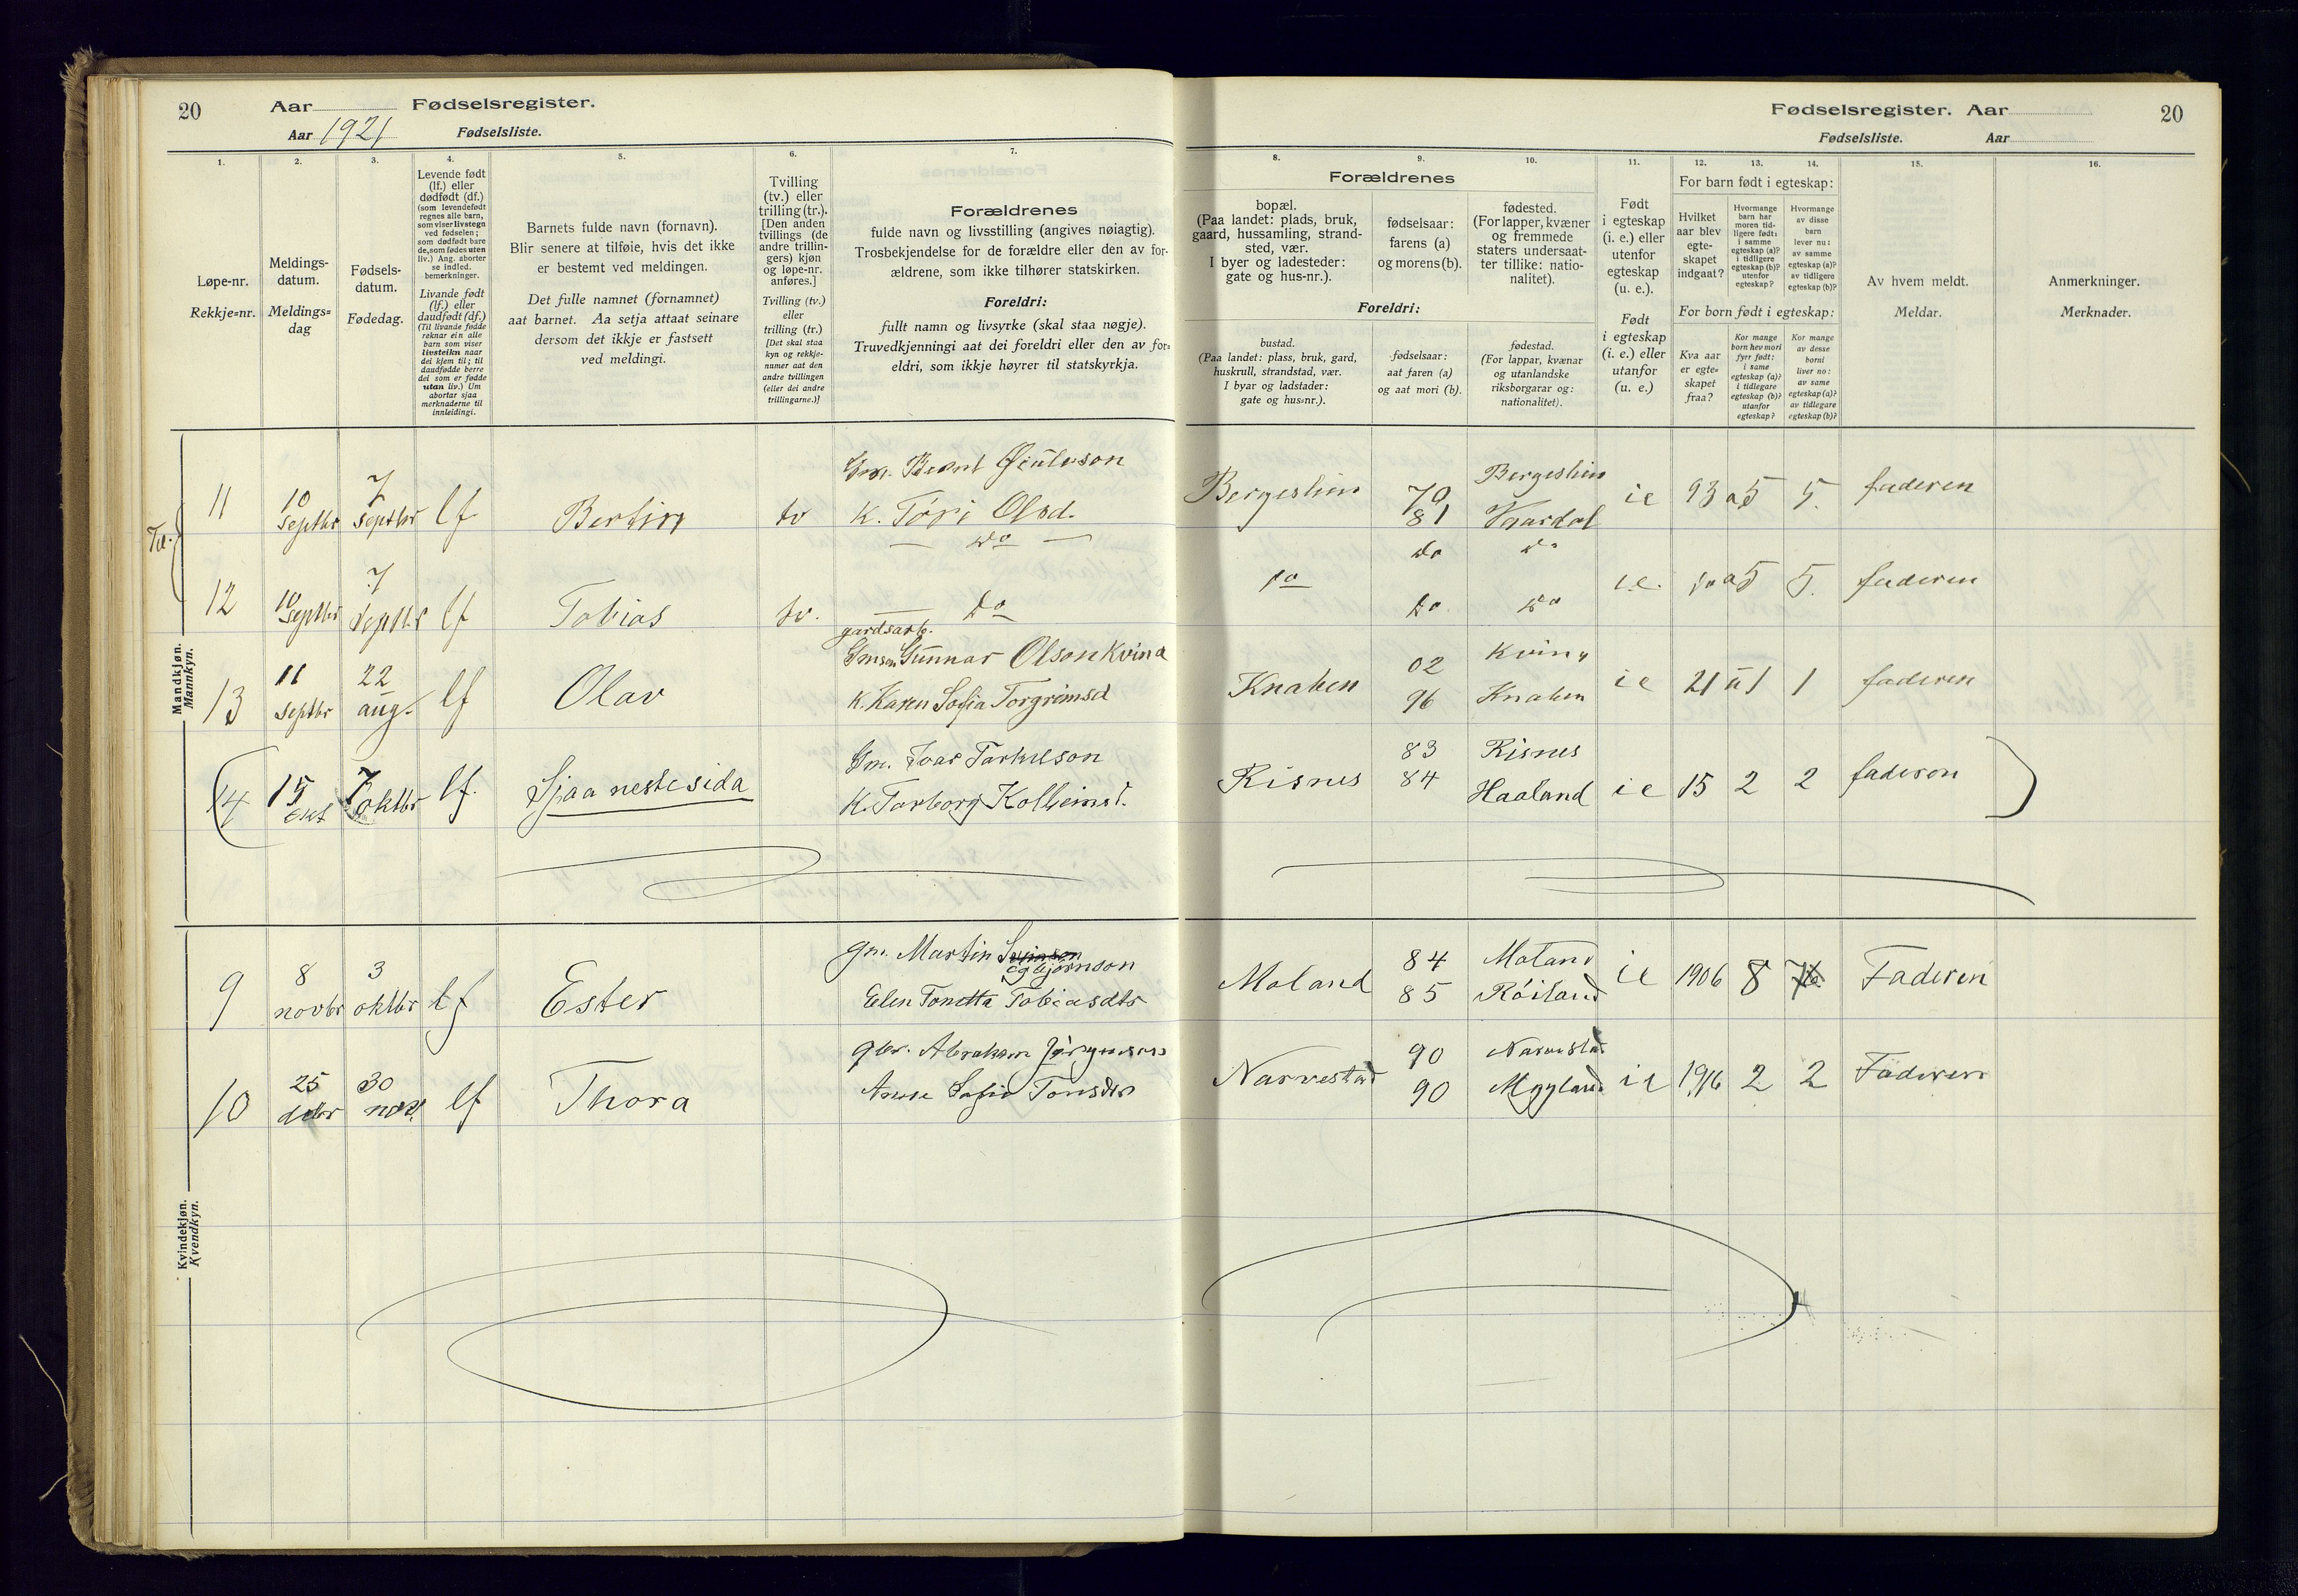 20 Aar Fødselsregister.
Aar 1921 Fødselsliste.
1. 2. 3. 4. 5. 6. 7.
Løpe-nr.
Rekkje=nr.
Meldings-
datum.
Meldings=
dag
Fødsels-
datum.
Fødedag.
Levende født
(lf.) eller
dødfødt (df.)
(som levendefødt
regnes alle barn,
som viser livstegn
ved fødselen;
som dødfødt bare
de, som fødes uten
liv.) Ang. aborter
se indled.
bemerkninger.
Livande født
(lf.) eller
daudfødt (df.)
(Til livande fødde
reknar ein alle
barn som viser
livsteikn naar
dei kjem til; til
daudfødde berre
dei som er fødde
utan liv.) Um
abortar sjaa
merknaderne til
innleidingi.
Barnets fulde navn (fornavn).
Blir senere at tilføie, hvis det ikke
er bestemt ved meldingen.
Det fulle namnet (fornamnet)
aat barnet. Aa setja attaat seinare
dersom det ikkje er fastsett
ved meldingi.
Tvilling
(tv.) eller
trilling (tr.).
[Den anden
tvillings (de
andre trillin-
gers) kjøn
og løpe-nr.
anføres.]
Tvilling (tv.)
eller
trilling (tr.)
[Det skal staa
kyn og rekkje-
numer aat den
andre tvillingen
(eller dei andre
trillingarne.)]
Forældrenes
fulde navn og livsstilling (angives nøiagtig).
Trosbekjendelse for de forældre eller den av for-
ældrene, som ikke tilhører statskirken.
Foreldri:
fullt namn og livsyrke (skal staa nøgje).
Truvedkjenningi aat dei foreldri eller den av for=
eldri, som ikkje høyrer til statskyrkja.
Mandkjøn.
Mannkyn.
11 10 septbr 7 septbr lf Bertin tv Gm. Bernt
K. Tøri Olsd.
12 10 septbr 7 septbr lf Tobias tv. do
do
13 11 septbr 22 aug. lf Olav gardsarb.
Gunnar Olson Kvina
K. Karen Sofia Torgrimsd
14 15 okt 7 oktbr lf. Sjaa neste sida Gm. Ivar Tarkelson
K. Tarborg
Kvindekjøn.
Kvendkyn.
9 8 novbr 3 oktbr lf Ester gm. Martin
Egbjørnson
Elen Tonetta Tobiasdtr
10 25 dcbr 30 nov. lf Thora gbr. Abraham Jørgensen
Anne Sofie
Fødselsregister. Aar 20
Fødselsliste. Aar
8. 9. 10. 11. 12. 13. 14. 15. 16.
Forældrenes
bopæl.
(Paa landet: plads, bruk,
gaard, hussamling, strand-
sted, vær.
I byer og ladesteder:
gate og hus-nr.).
fødselsaar:
farens (a)
og morens (b).
fødested.
(For lapper, kvæner
og fremmede
staters undersaat-
ter tillike: natio-
nalitet).
Foreldri:
bustad.
(Paa landet: plass, bruk, gard,
huskrull, strandstad, vær.
I byar og ladstader:
gate og hus=nr.).
fødselsaar:
aat faren (a)
og aat mori (b).
fødestad.
(For lappar, kvænar
og utanlandske
riksborgarar og:
nationalitet).
Født
i egteskap
(i. e.) eller
utenfor
egteskap
(u. e.).
Født
i egteskap
(i. e.) eller
utanfor
(u. e.)
For barn født i egteskap:
Hvilket
aar blev
egte-
skapet
indgaat?
Hvormange
barn har
moren tid-
ligere født:
i samme
egteskap (a)?
i tidligere
egteskap (b)?
utenfor
egteskap?
Hvormange
av disse
barn
lever nu:
av samme
egteskap (a)?
av tidligere
egteskap (b)?
For born født i egteskap:
Kva aar
er egte=
skapet
fraa?
Kor mange
born hev mori
fyrr født:
i same
egteskap (a)?
i tidlegare
egteskap (b)?
utanfor
egteskap?
Kor mange
av desse
borni
liver no:
av same
egteskap (a)?
av tidlegare
egteskap (b)?
Av hvem meldt.
Meldar.
Anmerkninger.
Merknader.
70 i e 93 a5 5. faderen
81
do do do i.e. do a5 5. faderen
do do
Knaben 02 Kvina i e 21 1 1 faderen
96 Knaben
Risnes 83 Risnes i e 15 2 2 faderen
84 Haaland
Moland 84 Moland i e 1906 8 7 Faderen
85 Röiland
Narvestad 90 Narvestad i e 1916 2 2 Faderen
90 Mygland